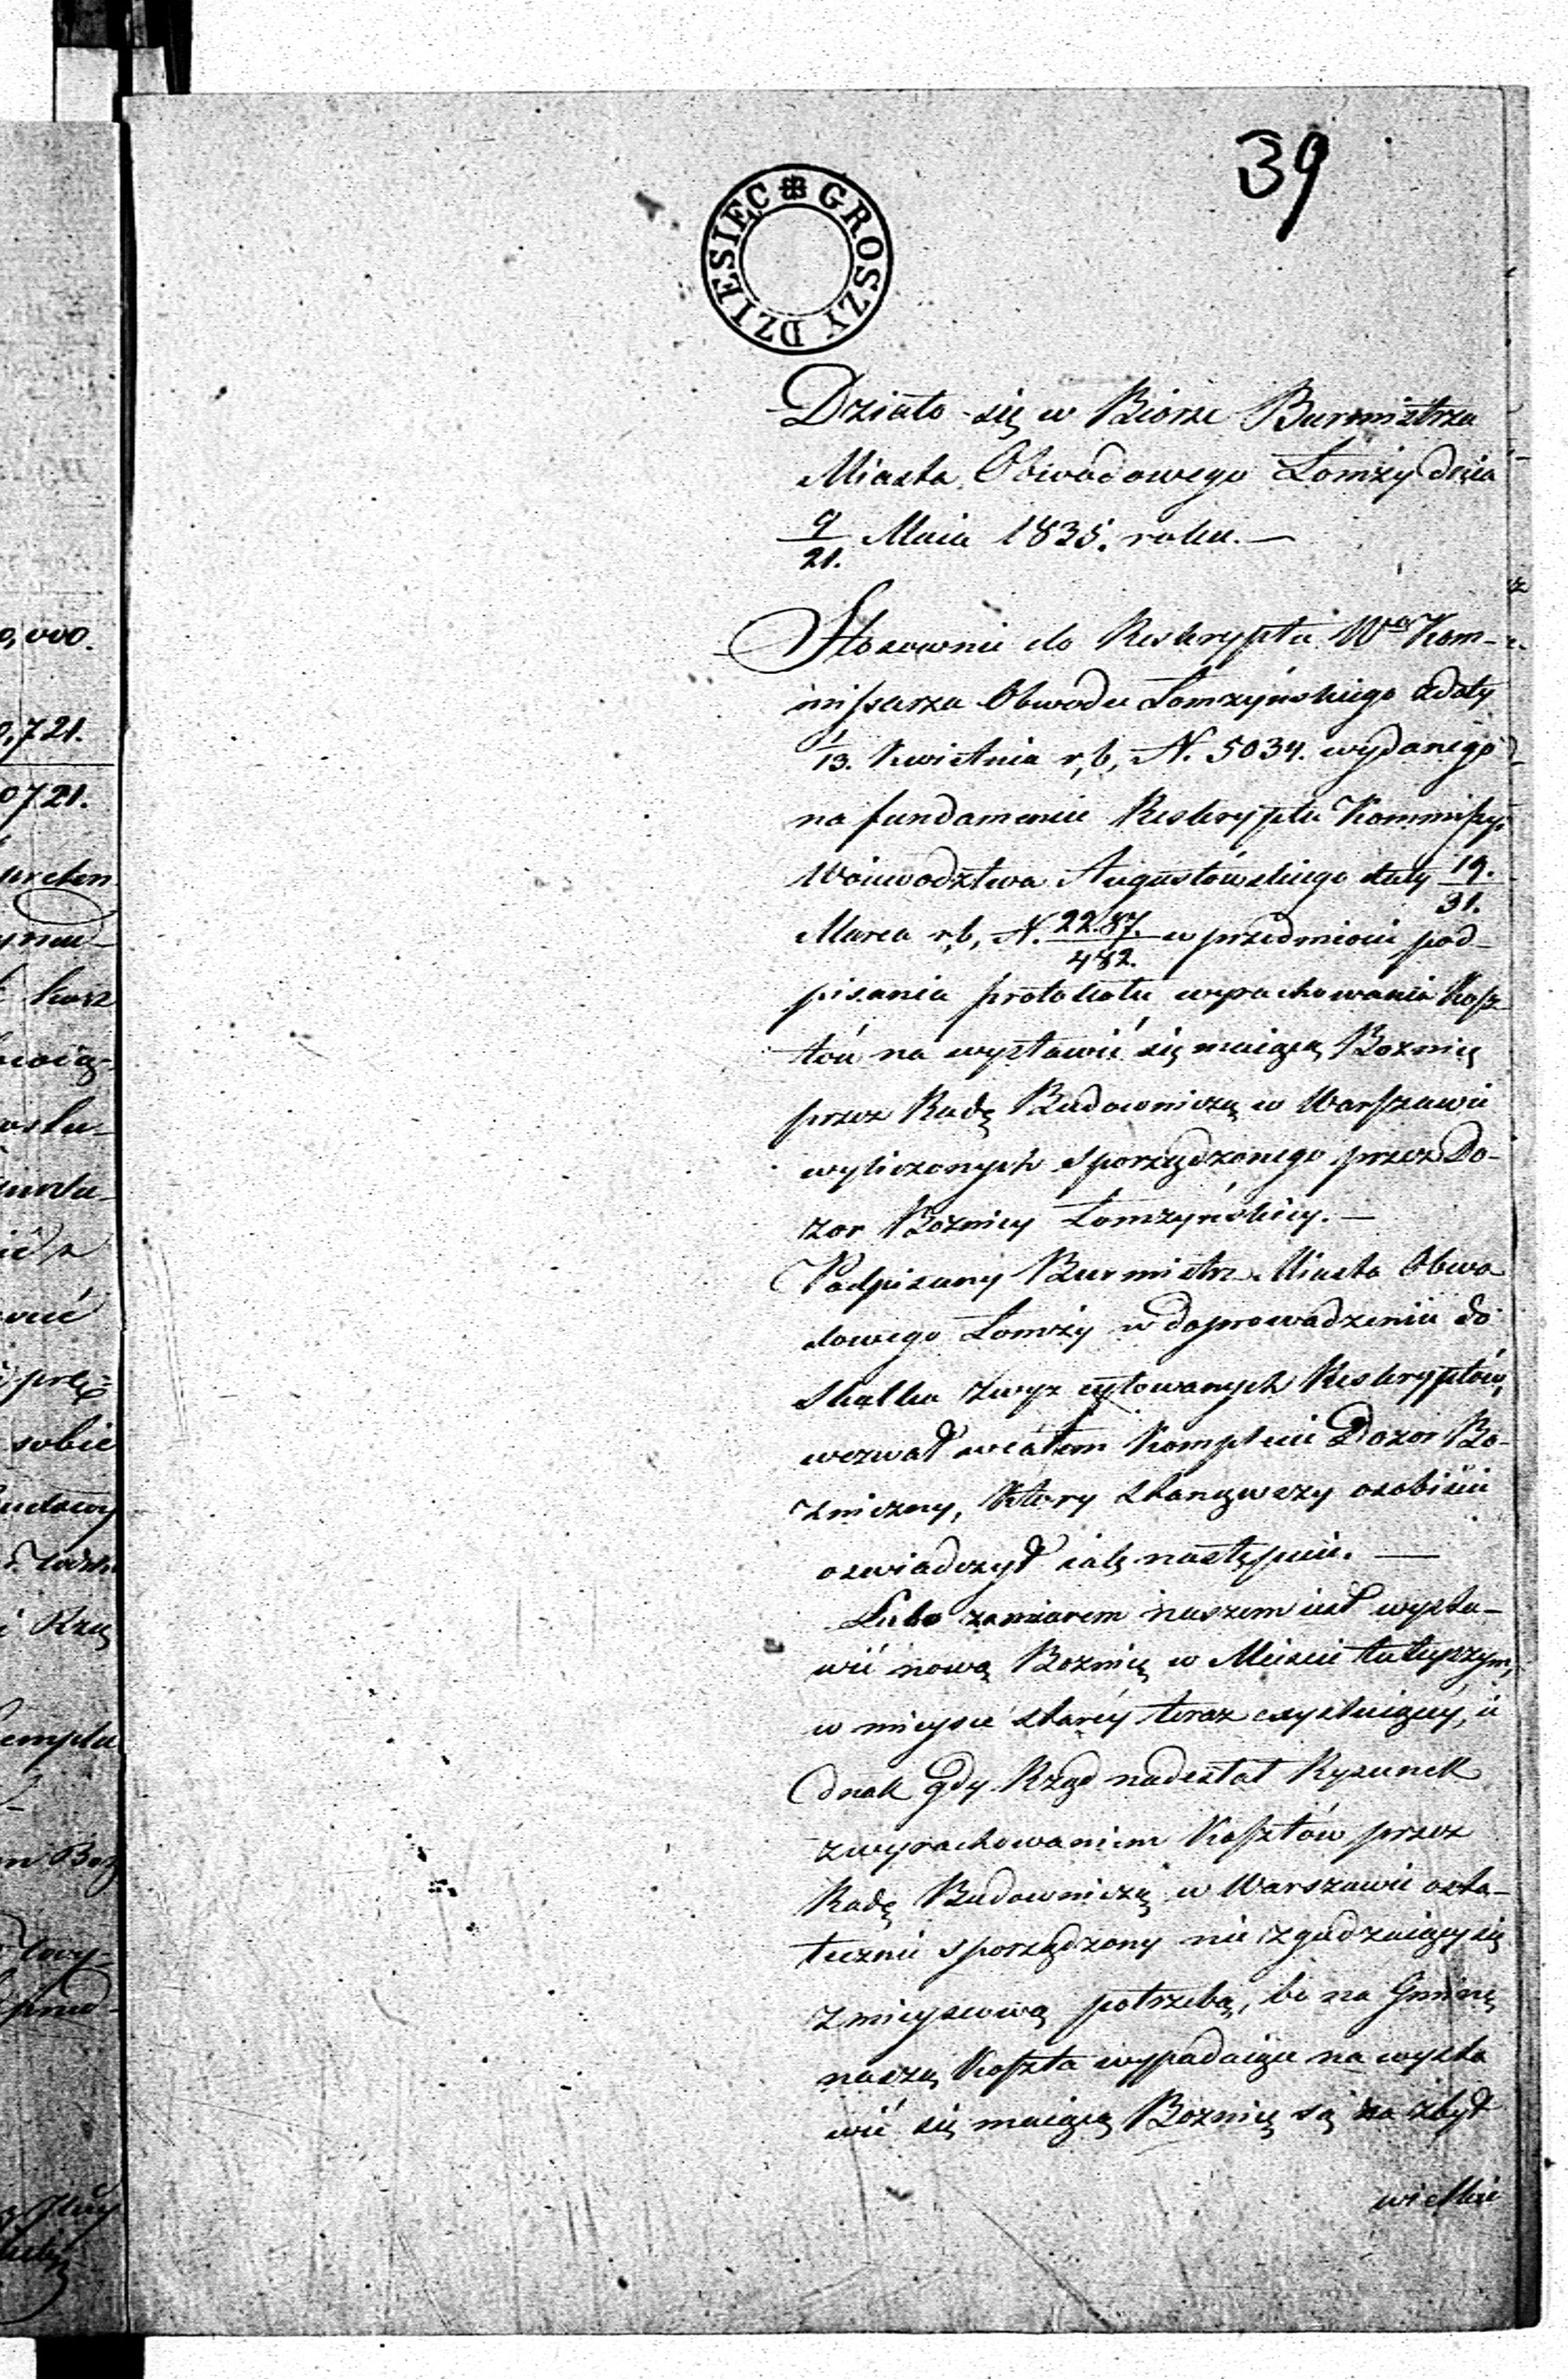 39
DZIESIĘC GROSZY
Działo się w Biorze Burmistrza
Miasta Obwodowego Łomży dnia
9/21. Maia 1835. roku. —
Stosownie do Reskryptu Wgo Kom-
missarza Obwodu Łomżyńskiego z daty
1/13. Kwietnia r, b, N. 5034. wydanego
na fundamencie Reskryptu Kommissyi
Woiewodztwa Augustowskiego daty 19./31.
Marca r, b, N. 22.87./482. w przedmiocie pod-
pisania protokołu wyrachowania Kosz-
tów na wystawić się maiącą Boznicę
przez Radę Budowniczą w Warszawie
wyliczonych sporządzonego przez Do-
zor Bożnicy Łomżyńskiey. —
Podpisany Burmistrz Miasta Obwo
dowego Łomży w doprowadzeniu do
skutku zwyz cytowanych Reskryptów,
wezwał w całem Komplecie Dozor Bo-
zniczny, Ktory stanąwszy osobiście
oswiadczył się następnie. —
Lubo zamiarem naszem iest wysta-
wić nową Boznicę w Mieście tuteyszym,
w mieysce staréy teraz exystuiącéy, ie
dnak gdy Rząd nadesłał Rysunek
z wyrachowaniem Kosztów przez
Radę Budowniczą w Warszawie osta-
tecznie sporządzony nie zgadzaiący się
z mieyscową potrzebą, bo na Gminę
naszą Koszta wypadaiące na wysta
wić się maiącą Boznicę są za zbyt
wielkie
0,000.
0,721.
0721.
sobie